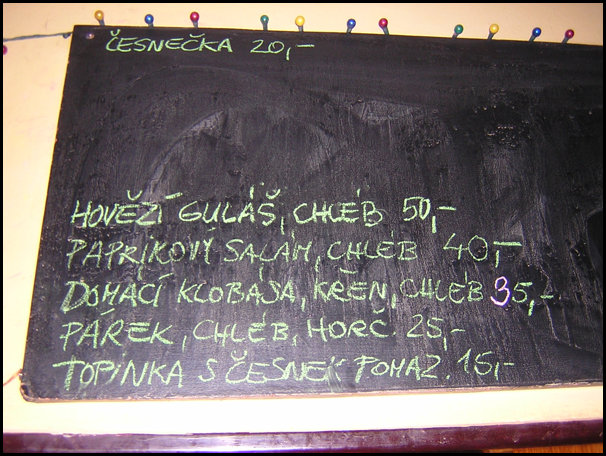 ČESNEČKA 20,-
HOVĚZÍ GULÁŠ, CHLÉB 50,-
PAPRIKOVÝ SALÁM, CHLÉB 40,-
DOMACÍ KLOBÁSA, KŘEN, CHLÉB 35,-
PÁREK, CHLÉB, HORČ. 25,-
TOPINKA S ČESNEK POMAZ. 15,-